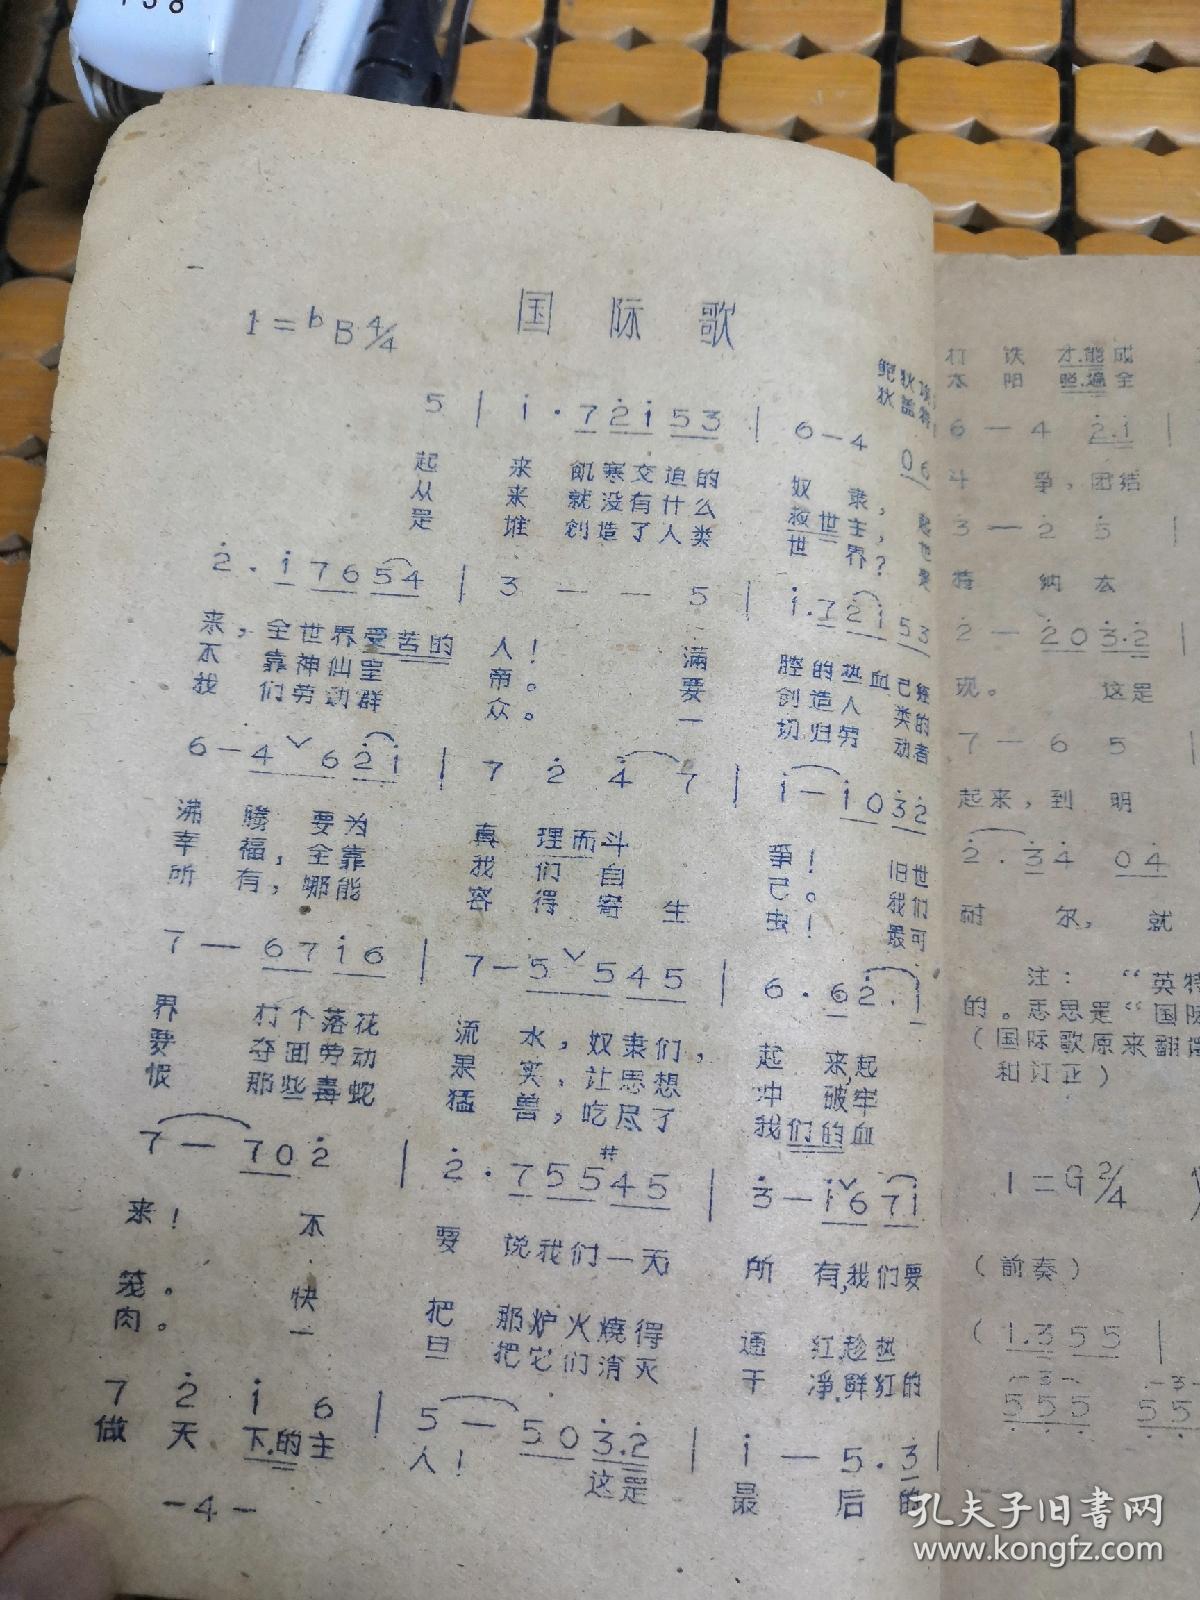 国际歌
1=bB4/4
鲍狄
狄盖特
5 | i·72i53 | 6-4 06
起 来 飢寒交迫的 奴 隶，
从 来 就没有什么 救世主，
是 谁 创造了人类 世 界？
2·i7654 | 3 - - 5 | i·72i53
来，全世界受苦的 人！ 满 腔的热血已经
不 靠神仙皇 帝。 要 创造人 类的
我 们劳动群 众。 一 切归劳 动者
6-4 ˇ 62i | 7 2 4 7 | i-i032
沸 腾 要为 真 理而斗 争！ 旧世
幸 福，全靠 我 们 自 己。 我们
所 有，哪能 容 得 寄 生 虫！ 最可
7-67i6 | 7-5ˇ545 | 6·62·i
界 打个落花 流 水，奴隶们， 起 来,起
要 夺回劳动 果 实，让思想 冲 破牢
恨 那些毒蛇 猛 兽，吃尽了 我们的血
7-702 | 2·755#45 | 3-iˇ67i
来！ 不 要 说我们一无 所 有,我们要
笼。 快 把 那炉火烧得 通 红,趁热
肉。 一 旦 把它们消灭 干 净,鲜红的
7 2 i 6 | 5-503·2 | i-5·3 |
做天下的主 人！ 这是 最 后的
-4-
打 铁 才能成
太 阳 照遍全
6-4 2·i |
斗 争，团结
3-2 5 |
特 纳
2-203·2 |
现。 这是
7-6 5 |
起来，到 明
2·34 04
耐 尔， 就
注： “英特
的。意思是“国际
（国际歌原来翻译
和订正）
1=G2/4
（前奏）
（1·355 |
-3- -3-
555 55
孔夫子旧书网
www.kongfz.com